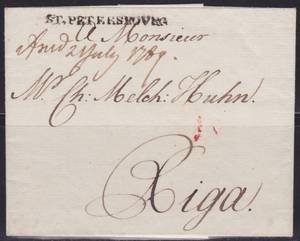 ST.PETERSBOURG
A Monsieur
Arrivd 21 July 1789.
Mr. Ch: Melch: Huhn.
Riga.